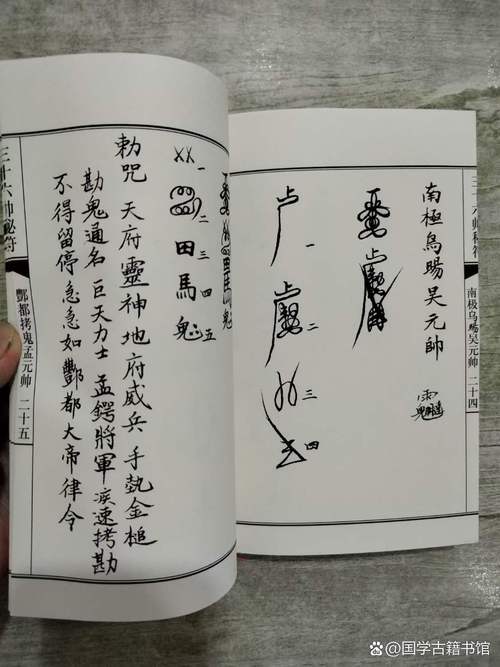 南極烏賜吴元帥
一 二 三 四
一 二 三 四 五
田 馬 鬼
勅咒 天府靈神地府威兵手執金槌
勘鬼通名巨天力士孟鍔將軍疾速拷勘
不得留停急急如酆都大帝律令
三十六帅秘符
酆都拷鬼孟元帅 二十五
国学古籍书馆